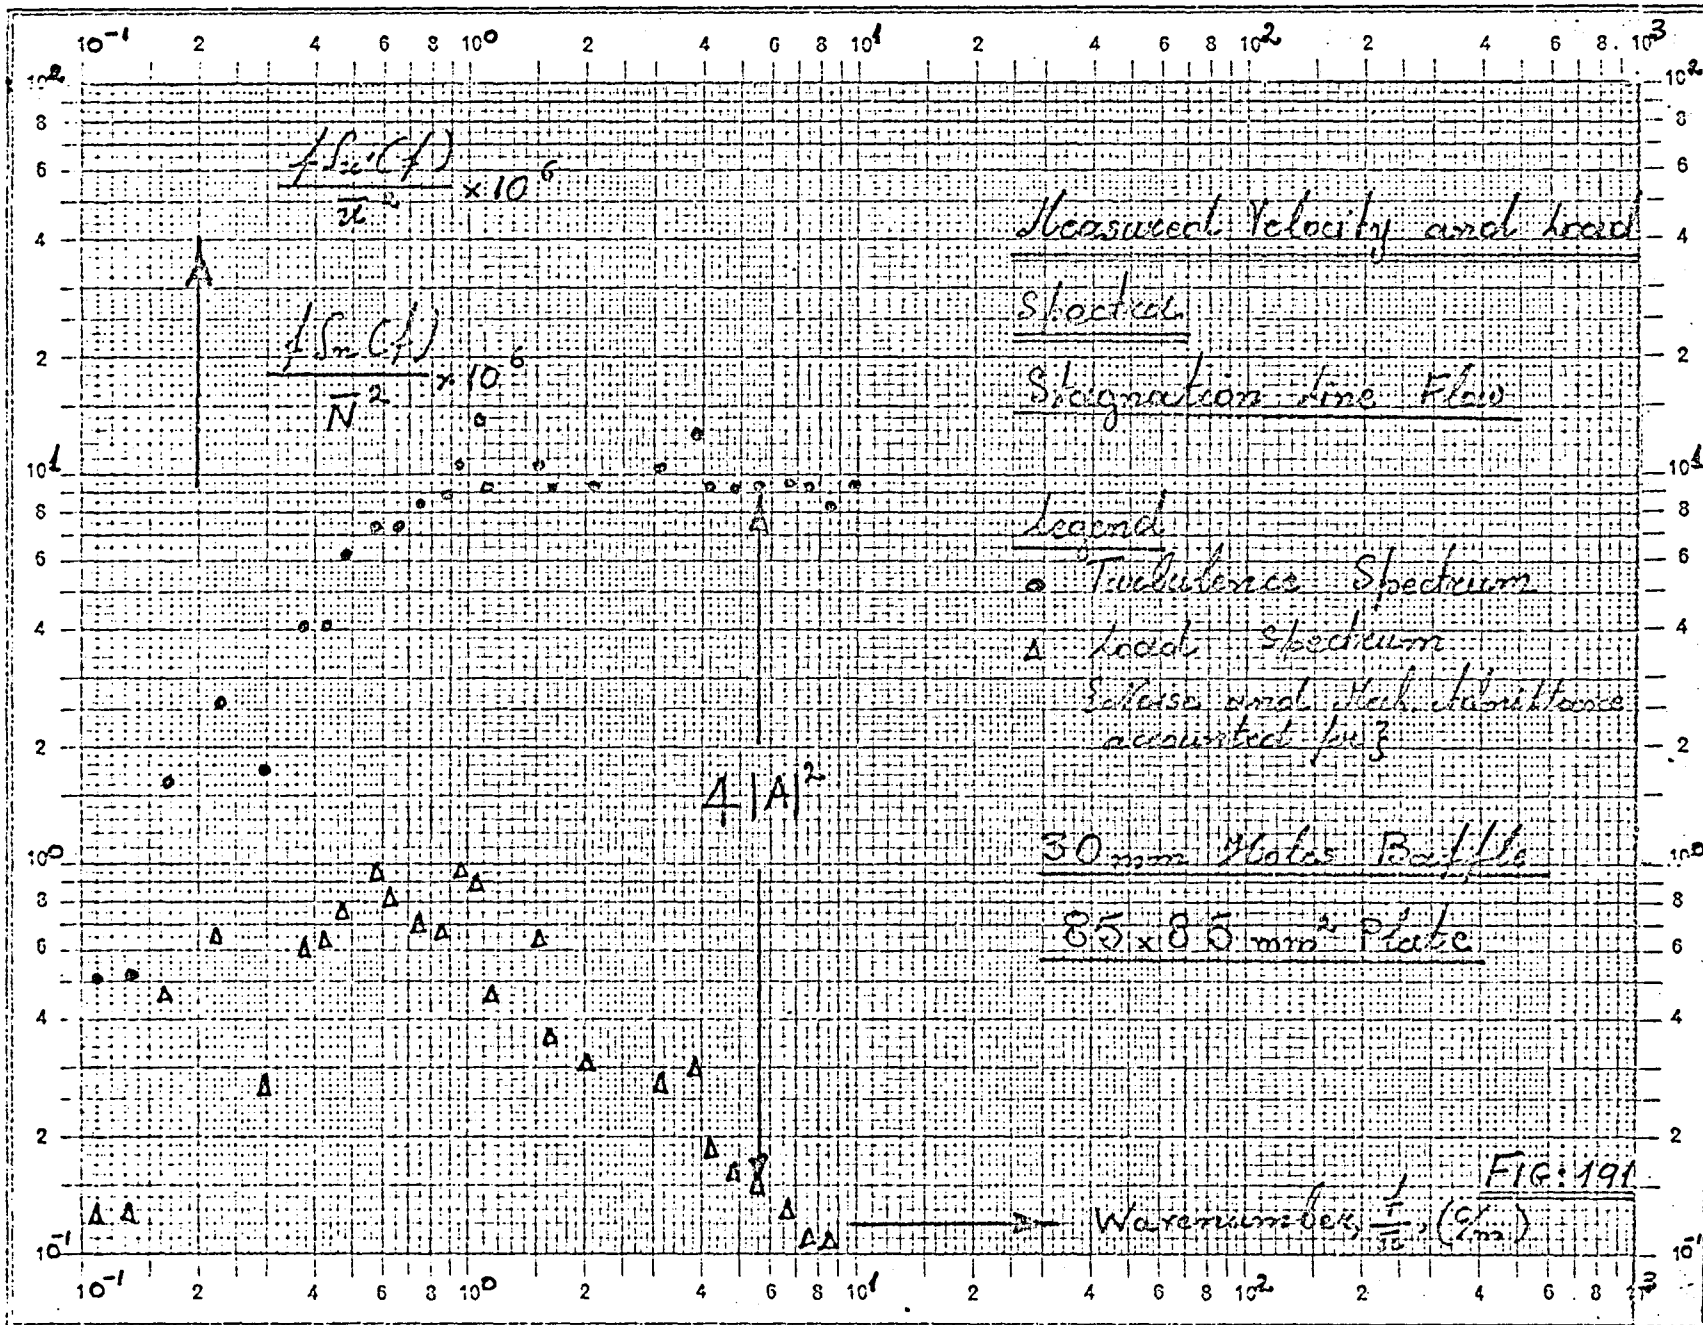 10⁻¹ 2 4 6 8 10⁰ 2 4 6 8 10¹ 2 4 6 8 10² 2 4 6 8 10³
10² 8 6 4 2 10¹ 8 6 4 2 10⁰ 8 6 4 2 10⁻¹
f Su'(f) / ū² × 10⁶
f Sn(f) / N̄² × 10⁶
Measured Velocity and Load
Spectra
Stagnation Line Flow
Legend
o Turbulence Spectrum
Δ Load Spectrum
{Noise and Mech. Admittance
accounted for}
4|A|²
30 mm Holes Baffle
85 x 85 mm² Plate
FIG: 191
Wavenumber, f/ū, (c/m)
10² 8 6 4 2 10¹ 8 6 4 2 10⁰ 8 6 4 2 10⁻¹
10⁻¹ 2 4 6 8 10⁰ 2 4 6 8 10¹ 2 4 6 8 10² 2 4 6 8 10³